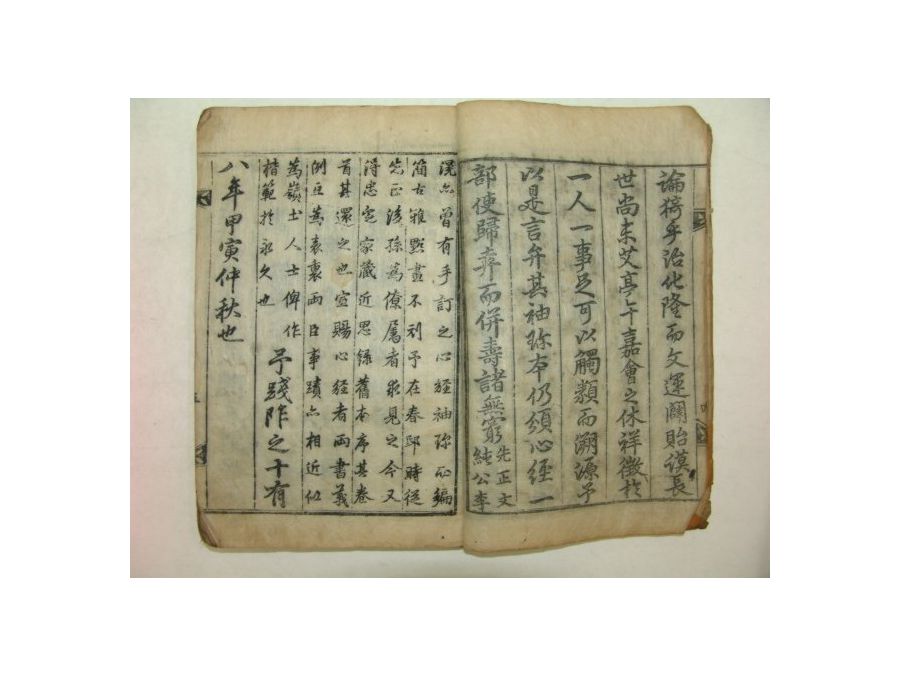 論猗乎治化隆而文運闢貽謨長
世尚未艾亭午嘉會之休祥徵於
一人一事足可以觸類而溯源予
以是言弁其袖珍本仍頒心經一
部使歸弆而併壽諸無窮先正文
純公李
滉亦曾有手訂之心經袖珍而編
簡古雅點畫不刓予在春邸時從
先正後孫為僚屬者求見之今又
得忠定家藏近思錄舊本序其卷
首其還之也宣賜心經者兩書義
例互為表裏兩臣事蹟亦相近似
為嶺土人士俾作
楷範於永久也予踐阼之十有
八年甲寅仲秋也